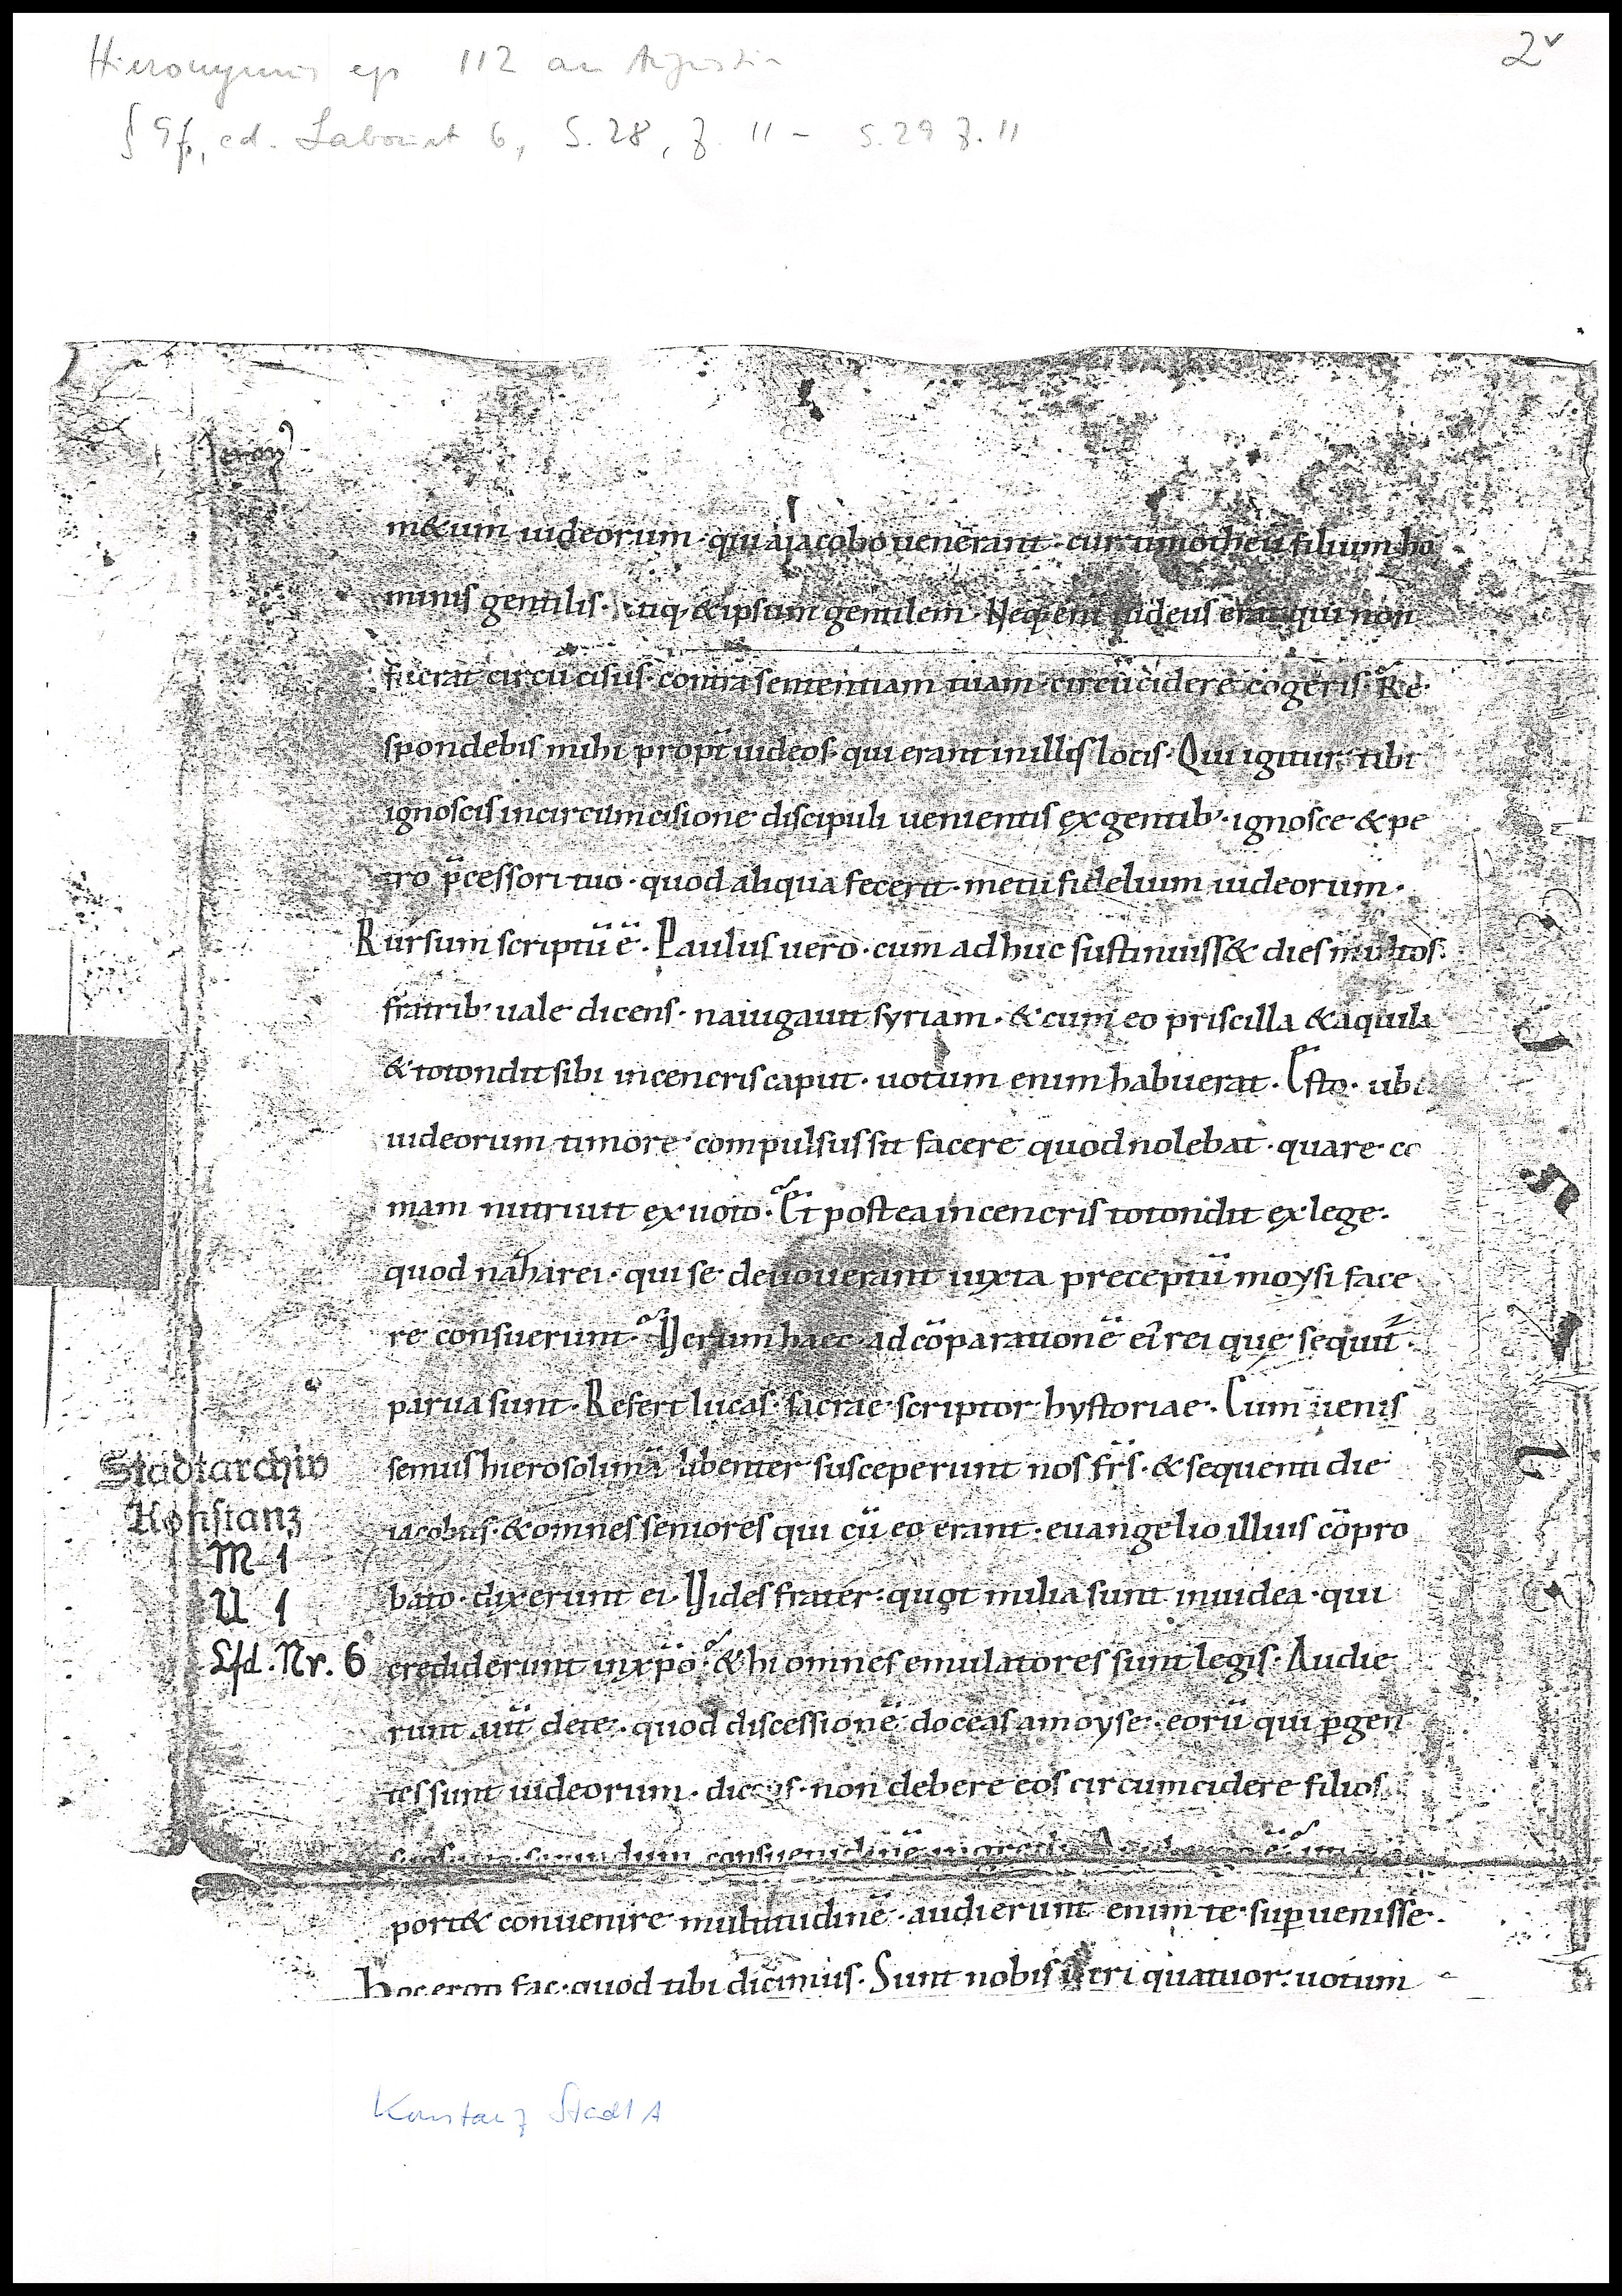 Hieronymus ep 112 an Augustin
2v
§ 9f, ed. Labourt 6, S. 28, Z. 11 – S. 29 Z. 11
m&um iudeorum · qui a iacobo uenerant · cur timotheū filium ho
minis gentilis · utiq; & ipsum gentilem · Neq; eni iudeus erat qui non
fuerat circūcisus · contra sententiam tuam circūcidere cogeris · Re
spondebis mihi propt iudeos · qui erant in illis locis · Qui igitur tibi
ignoscis in circumcisione discipuli uenientis ex gentib; · ignosce & pe
tro p̄cessori tuo · quod aliqua fecerit · metu fidelium iudeorum ·
Rursum scriptū ē · Paulus uero · cum adhuc sustinuiss& dies multos ·
fratrib; uale dicens · nauigauit syriam · & cum eo priscilla & aquila
& totondit sibi in cencris caput · uotum enim habuerat · Esto · ubi
iudeorum timore compulsus sit facere quod nolebat · quare co
mam nutriuit ex uoto · Et postea in cencris totondit ex lege ·
quod naharei · qui se deuouerant iuxta preceptū moysi face
re consuerunt · Verum haec ad cōparationē ei rei que sequit̄ ·
parua sunt · Refert lucas · sacrae scriptor hystoriae · Cum uenis
semus hierosolimā libenter susceperunt nos fr̄s · & sequenti die
iacobus · & omnes seniores qui cū eo erant · euangelio illius cōpro
bato · dixerunt ei · Vides frater · quot milia sunt in iudea · qui
crediderunt in xp̄o · & hi omnes emulatores sunt legis · Audie
runt aut̄ de te · quod discessionē doceas a moyse · eorū qui p gen
tes sunt iudeorum · dicens · non debere eos circumcidere filios
secundum consuetudinē ingredi
port& conuenire multitudinē · audierunt enim te supuenisse ·
Hoc ergo fac · quod tibi dicimus · Sunt nobis uiri quatuor · uotum
Stadtarchiv
Konstanz
M 1
U 1
Lfd. Nr. 6
Konstanz StadtA